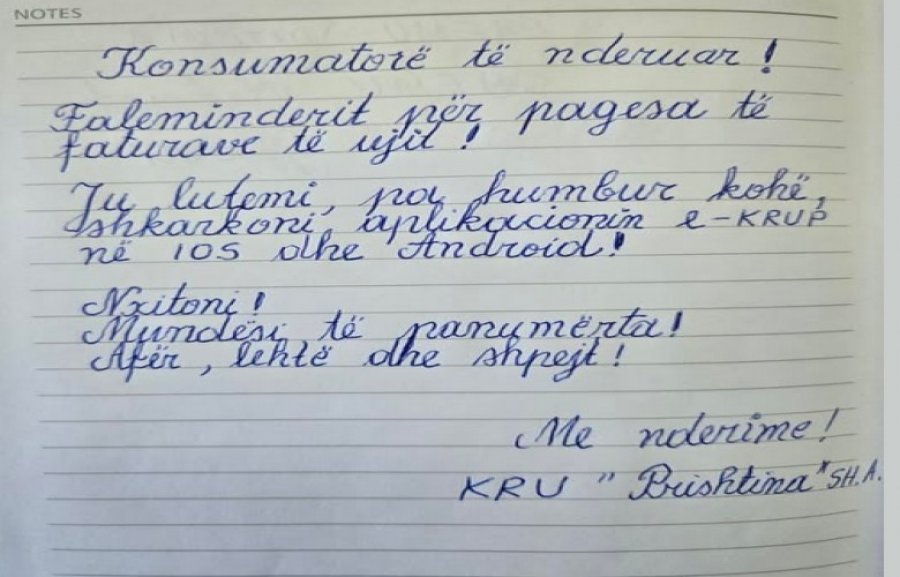 NOTES
Konsumatorë të nderuar!
Faleminderit për pagesa të
faturave të ujit!
Ju lutemi, pa humbur kohë,
shkarkoni aplikacionin e-KRUP
në IOS dhe Android!
Nxitoni!
Mundësi të panumërta!
Afër, lehtë dhe shpejt!
Me nderime!
KRU "Prishtina" SH.A.